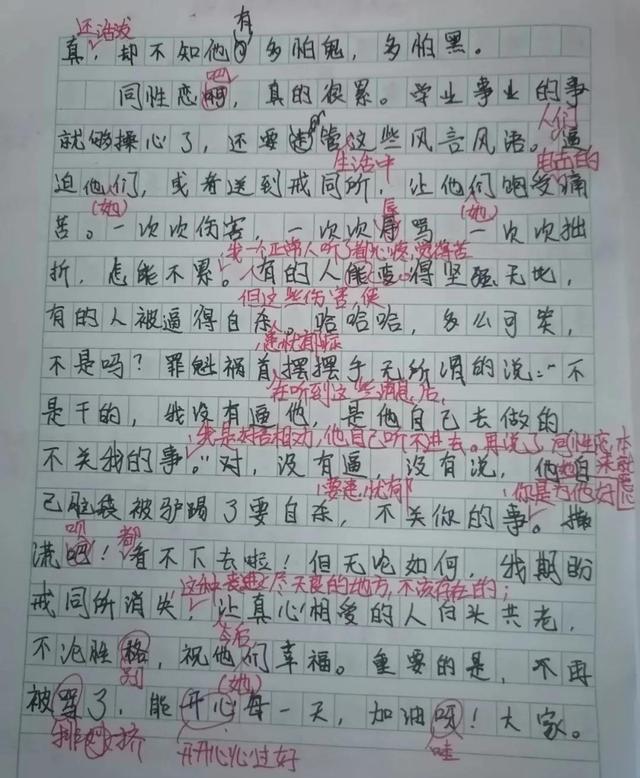 还活泼 有
真，却不知他多怕鬼，多怕黑。
吧
同性恋啊，真的很累。学业事业的事
人们
就够操心了，还要管这些风言风语。逼
生活中 自由的
迫他们，或者送到戒同所，让他们咽受痛
(她) 辱 (她)
苦。一次次伤害，一次次辱骂，一次次拙
我一个正常人听了都心疼，觉得苦
折，怎能不累。有的人能变得坚强无比，
但这些伤害，使
有的人被逼得自杀。哈哈哈，多么可笑，
患忧郁症
不是吗？罪魁祸首摆摆手无所谓的说："不
在听到这些消息后，
是干的，我没有逼他，是他自己去做的，
我是好言相劝，他自己听不进去。再说了同性恋本来就恶
不关我的事。"对，没有逼，没有说，他自
要患忧郁 你是为他好
己脑袋被驴踢了要自杀，不关你的事。撒
呗 都
谎吧！看不下去啦！但无论如何，我期盼
这种丧尽天良的地方，不该存在的；
戒同所消失，让真心相爱的人白头共老，
今后
不论性格，祝他们幸福。重要的是，不再
别 (她)
被骂了，能开心每一天，加油呀！大家。
排挤 开开心心过好 哇